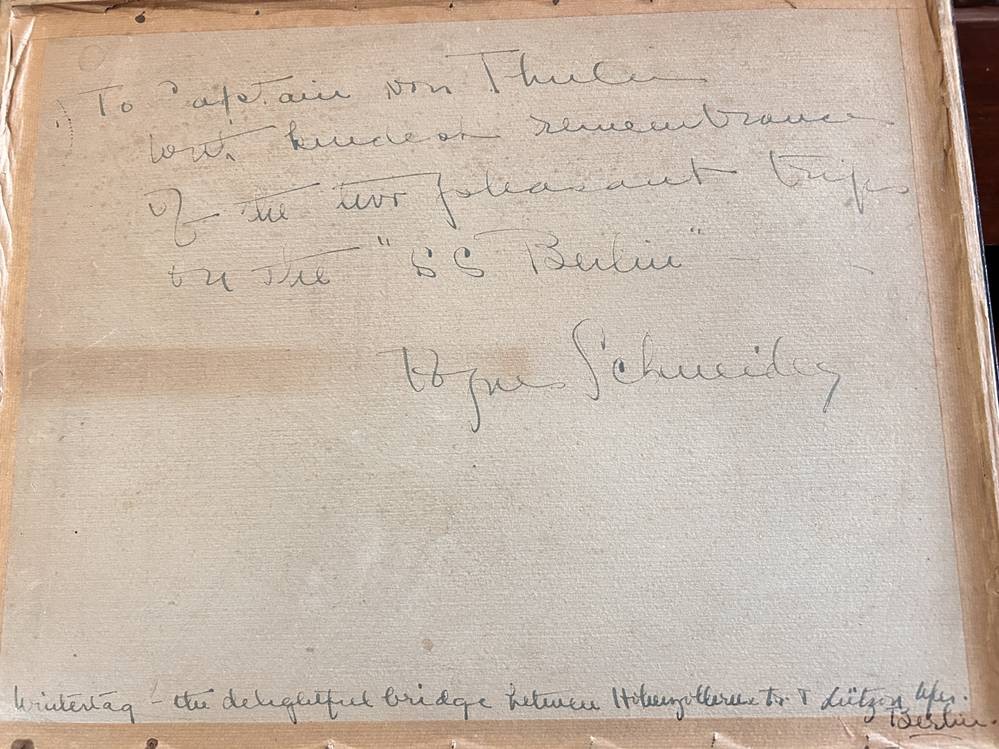 To Captain von Thulen
with kindest remembrance
of the two pleasant trips
on the "SS Berlin"
Agnes Schneider
Wintertag - the delightful bridge between Hohenzollern Str. + Lützow Ufer.
Berlin.